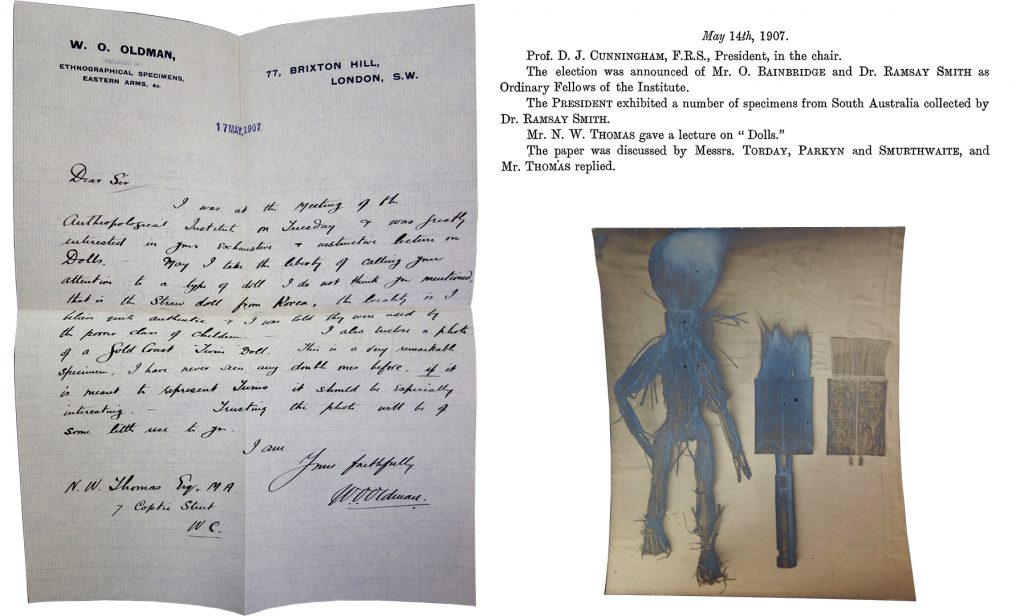 W. O. OLDMAN,
ETHNOGRAPHICAL SPECIMENS,
EASTERN ARMS, &c.
77, BRIXTON HILL,
LONDON, S.W.
17 MAY. 1907
Dear Sir
I was at the Meeting of the
Anthropological Institute on Tuesday & was greatly
interested in your Exhaustive & instructive lecture on
Dolls. — May I take the liberty of calling your
attention to a type of doll I do not think you mentioned,
that is the Straw doll from Korea, the locality is I
believe quite authentic & I was told they were used by
the poorer class of children. — I also inclose a photo
of a Gold Coast Twin Doll. This is a very remarkable
specimen, I have never seen any double ones before, if it
is meant to represent Twins it should be Especially
interesting. — Trusting the photo will be of
some little use to you.
I am
Yours faithfully
W.O.Oldman.
N. W. Thomas Esq. M.A.
7 Coptic Street
W C.
May 14th, 1907.
Prof. D. J. CUNNINGHAM, F.R.S., President, in the chair.
The election was announced of Mr. O. BAINBRIDGE and Dr. RAMSAY SMITH as
Ordinary Fellows of the Institute.
The PRESIDENT exhibited a number of specimens from South Australia collected by
Dr. RAMSAY SMITH.
Mr. N. W. THOMAS gave a lecture on “ Dolls.”
The paper was discussed by Messrs. TORDAY, PARKYN and SMURTHWAITE, and
Mr. THOMAS replied.